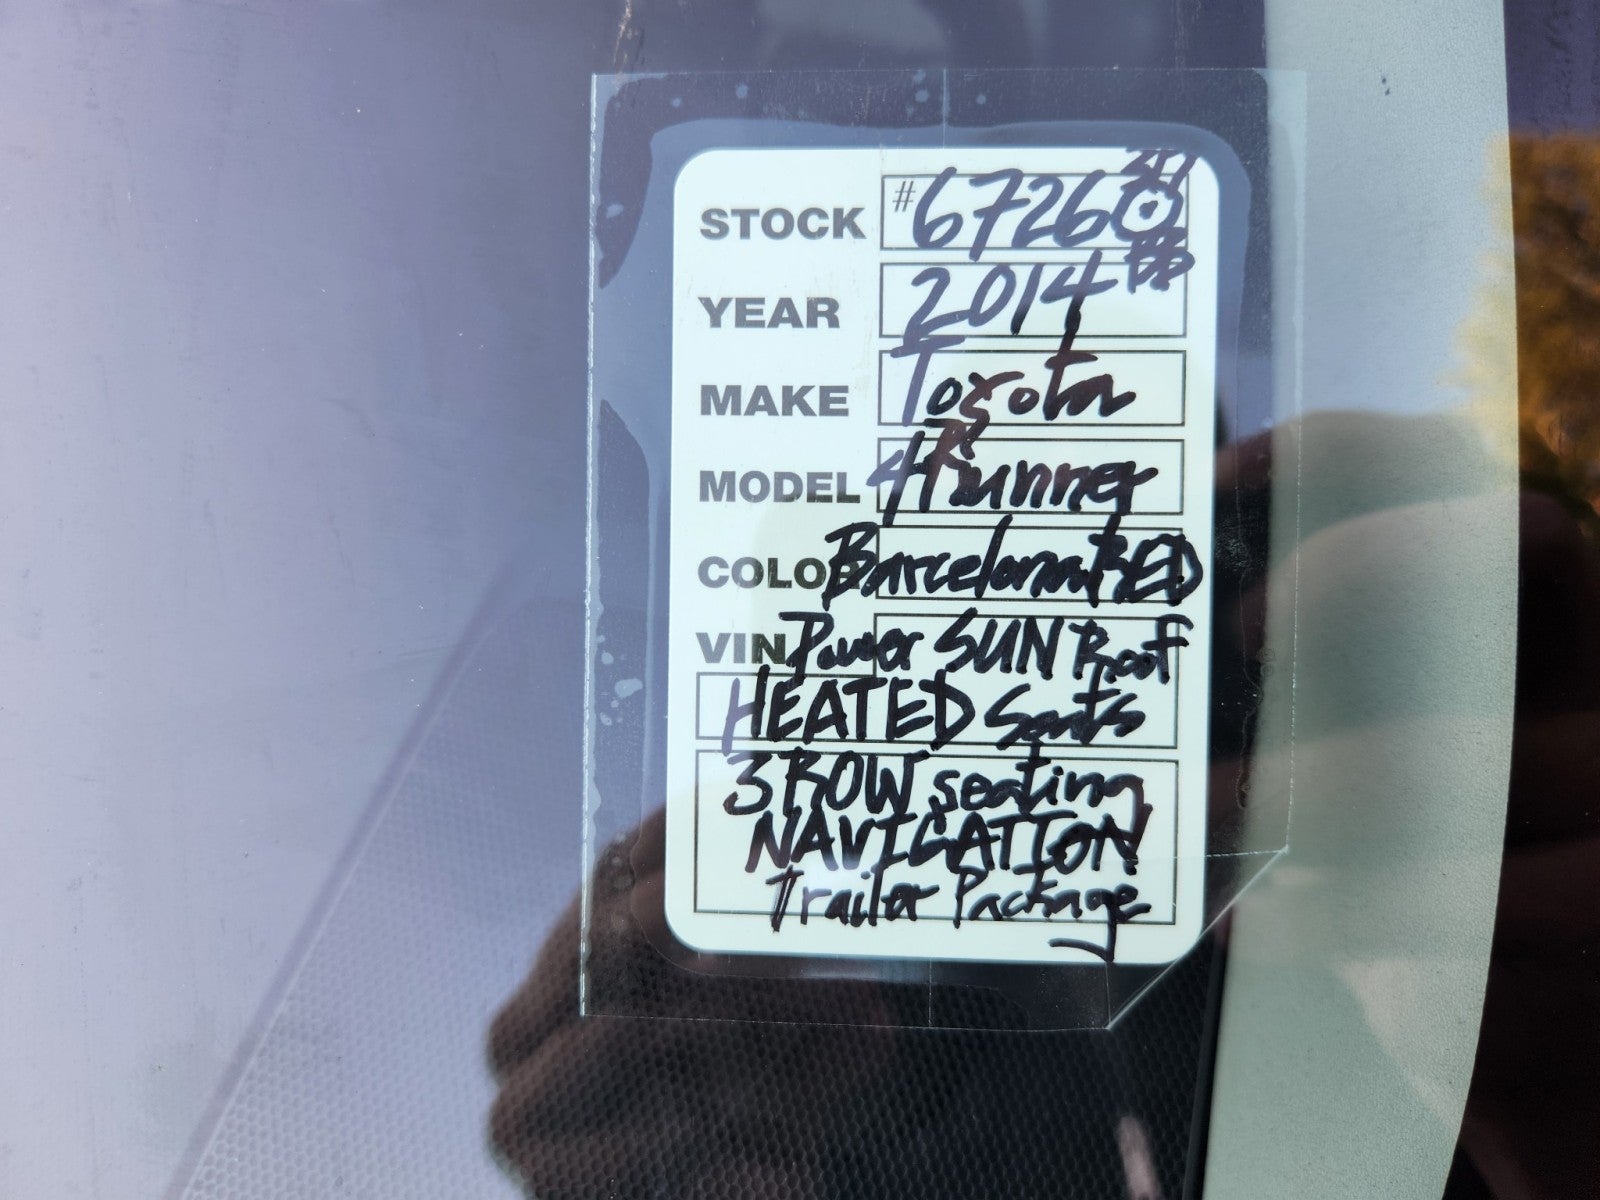 STOCK #67260
YEAR 2014
MAKE Toyota
MODEL 4Runner
COLOR Barcelona RED
VIN Power SUN Roof
HEATED Seats
3 ROW seating
NAVIGATION
Trailer Package